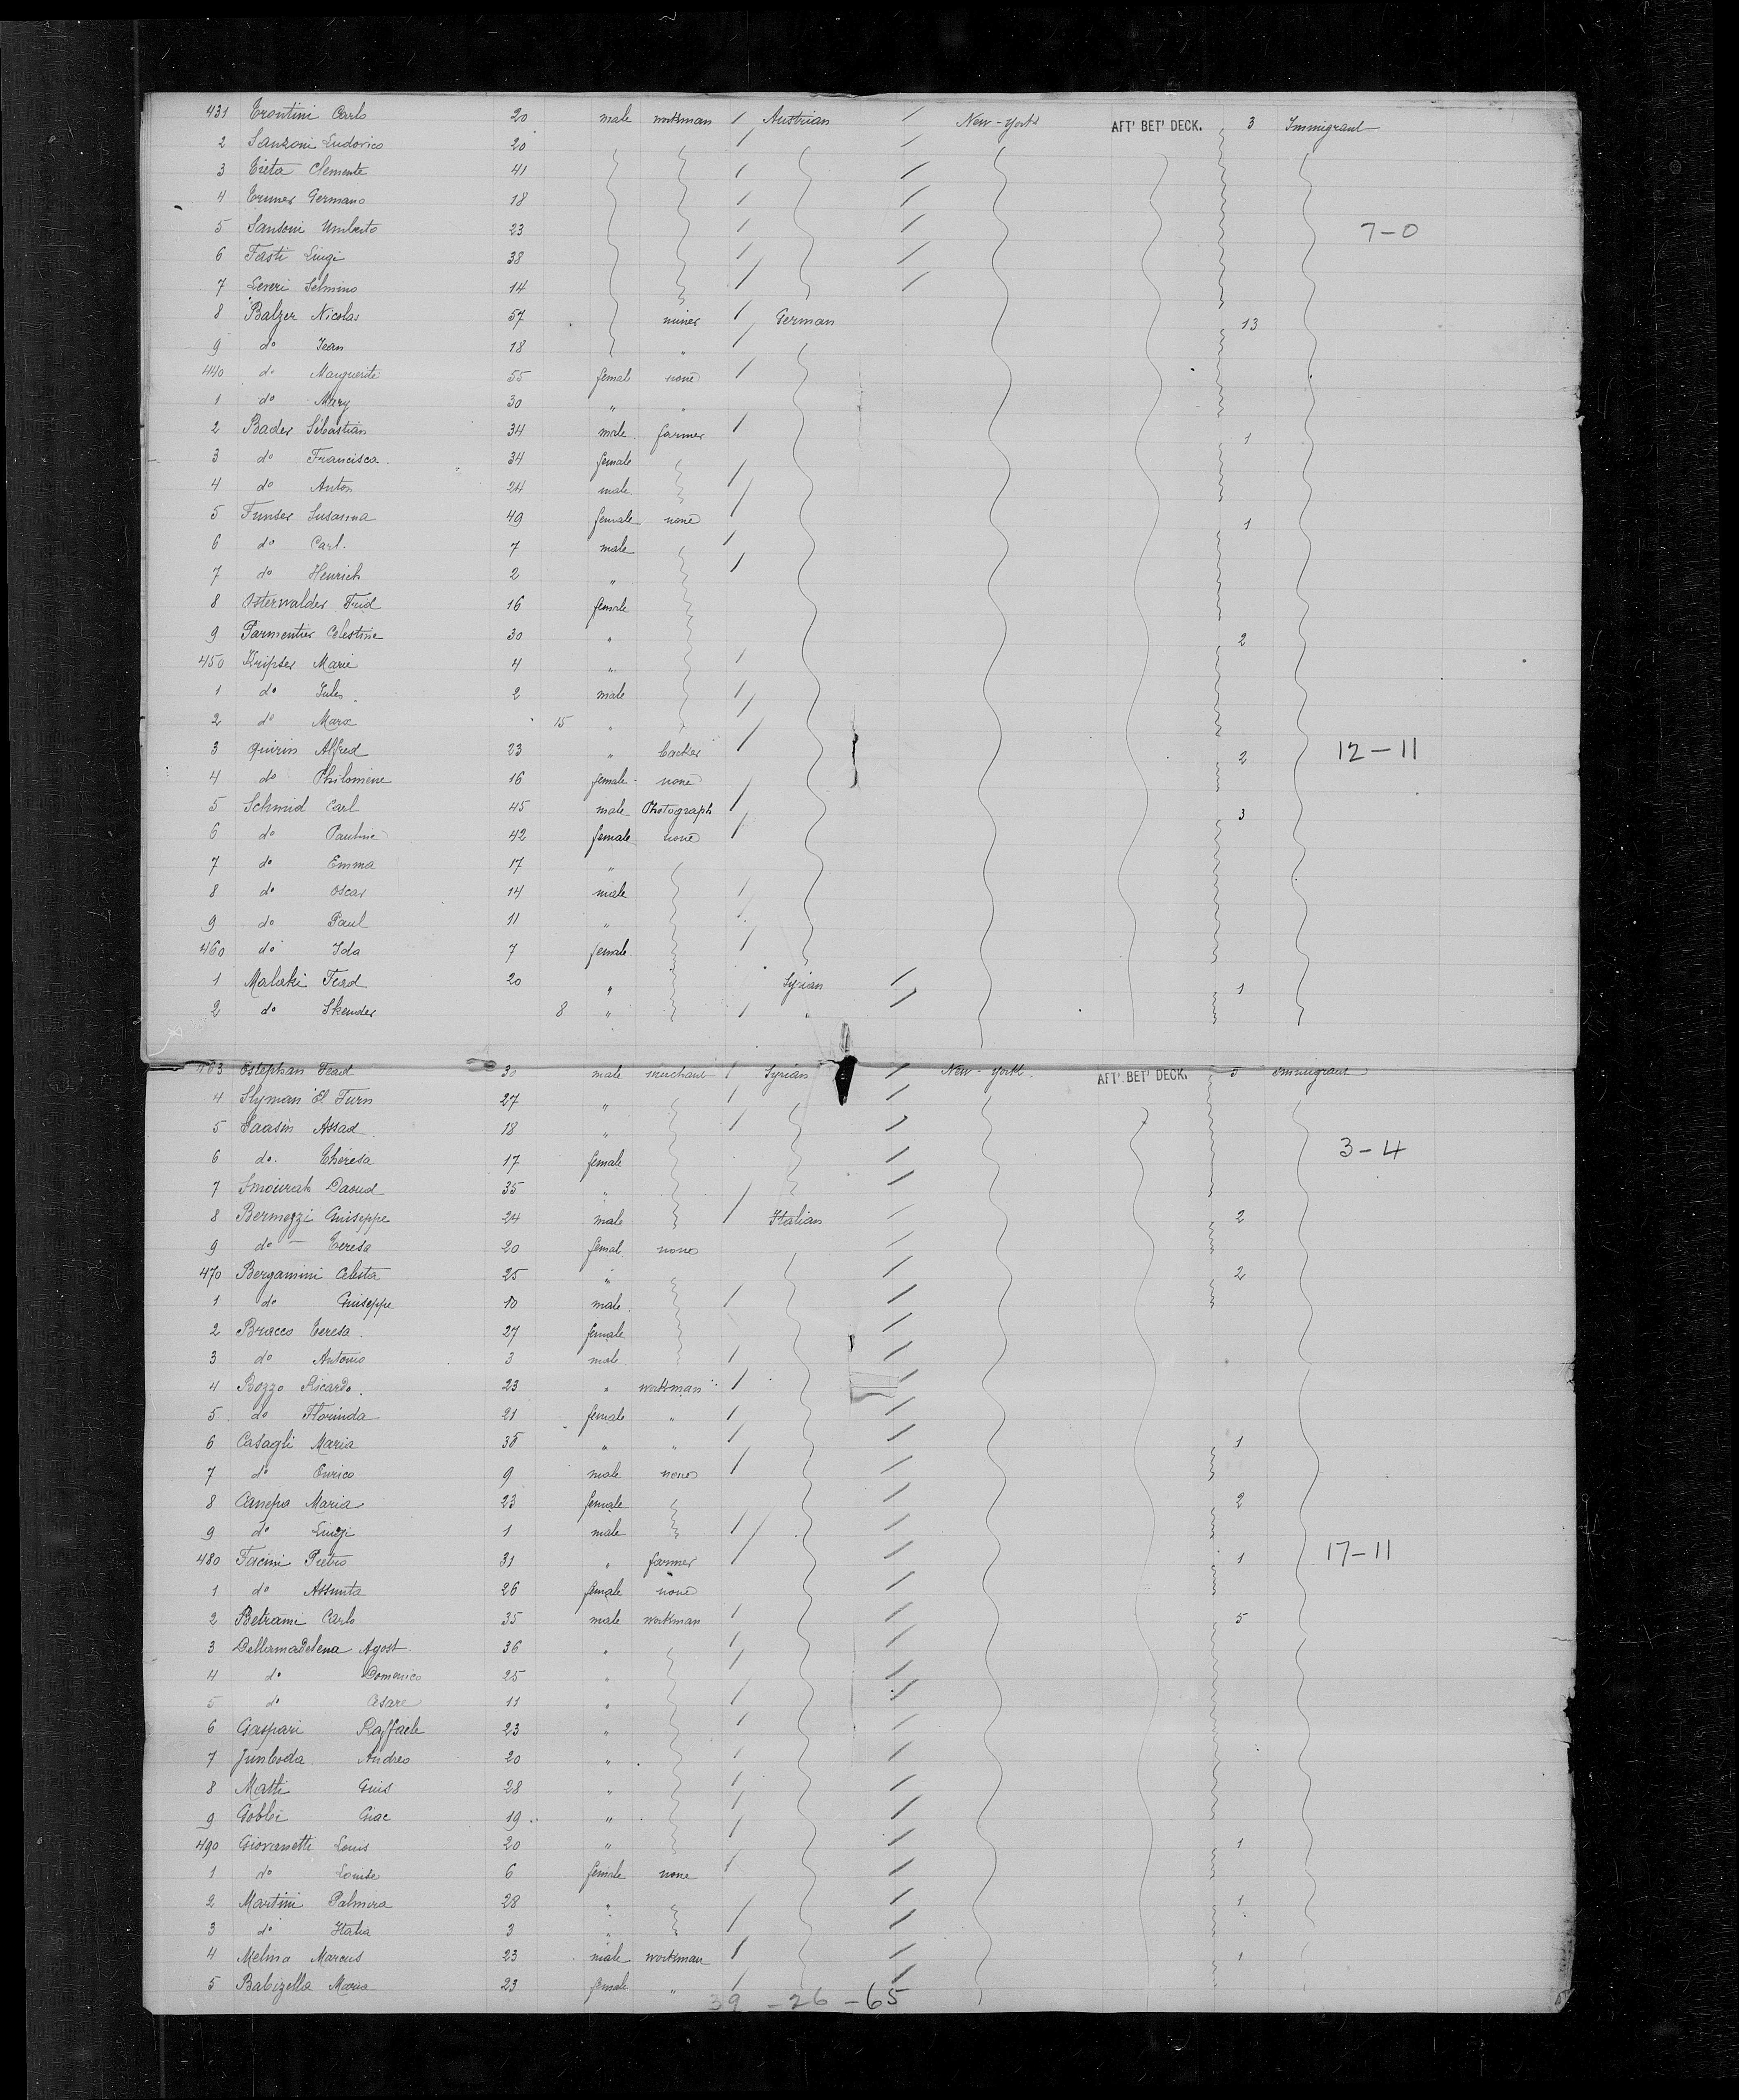 431 Trontini Carlo 20 male workman Austrian New-York AFT' BET' DECK. 3 Immigrant
2 Sanzoni Ludovico 20
3 Tieta Clemente 41
4 Truner Germano 18
5 Sansoni Umberto 23 7-0
6 Fasti Luigi 38
7 Leveri Selmino 14
8 Balzer Nicolas 57 miner German 13
9 do Jean 18 "
440 do Marguerite 55 female none
1 do Mary 30 " "
2 Bader Sebastian 34 male farmer 1
3 do Francisca 34 female
4 do Anton 24 male
5 Funser Susanna 49 female none 1
6 do Carl 7 male
7 do Henrich 2 "
8 Osterwalder Frid 16 female
9 Parmentier Celestine 30 " 2
450 Kripser Marie 4 "
1 do Jules 2 male
2 do Marx 15 "
3 Quirin Alfred 23 " backer 2 12-11
4 do Philomene 16 female none
5 Schmid Carl 45 male Photograph 3
6 do Pauline 42 female none
7 do Emma 17 "
8 do Oscar 14 male
9 do Paul 11 "
460 do Ida 7 female
1 Malaki Fead 20 " Syrian 1
2 do Skender 8 " "
463 Estephan Fead 30 male merchant Syrian New-York AFT' BET' DECK. 5 emmigrant
4 Slyman El Turn 27 "
5 Saasin Assad 18 "
6 do. Theresa 17 female 3-4
7 Smourah Daoud 35 "
8 Bermezzi Guiseppe 24 male Italian 2
9 do Teresa 20 femal. none
470 Bergamini Celesta 25 " 2
1 do Guiseppe 10 male
2 Bracco Teresa 27 female
3 do Antonio 3 male
4 Bozzo Ricardo. 23 " workman
5 do Florinda 21 female "
6 Casagli Maria 38 " " 1
7 do Enrico 9 male none
8 Canepa Maria 23 female 2
9 do Luigi 1 male
480 Facini Pietro 31 " farmer 1 17-11
1 do Assunta 26 female none
2 Betrami Carlo 35 male workman 5
3 Dellamadelena Agost. 36 "
4 do Domenico 25 "
5 do Cesare 11 "
6 Gaspari Raffaele 23 "
7 Junboda Andreo 20 "
8 Matti Guis 28 "
9 Gobbi Giac 19 "
490 Giovanetti Louis 20 " 1
1 do Louise 6 female none
2 Martini Palmira 28 " 1
3 do Italia 3 "
4 Melina Marcus 23 male workman 1
5 Babizella Maria 23 female "
39 - 26 - 65